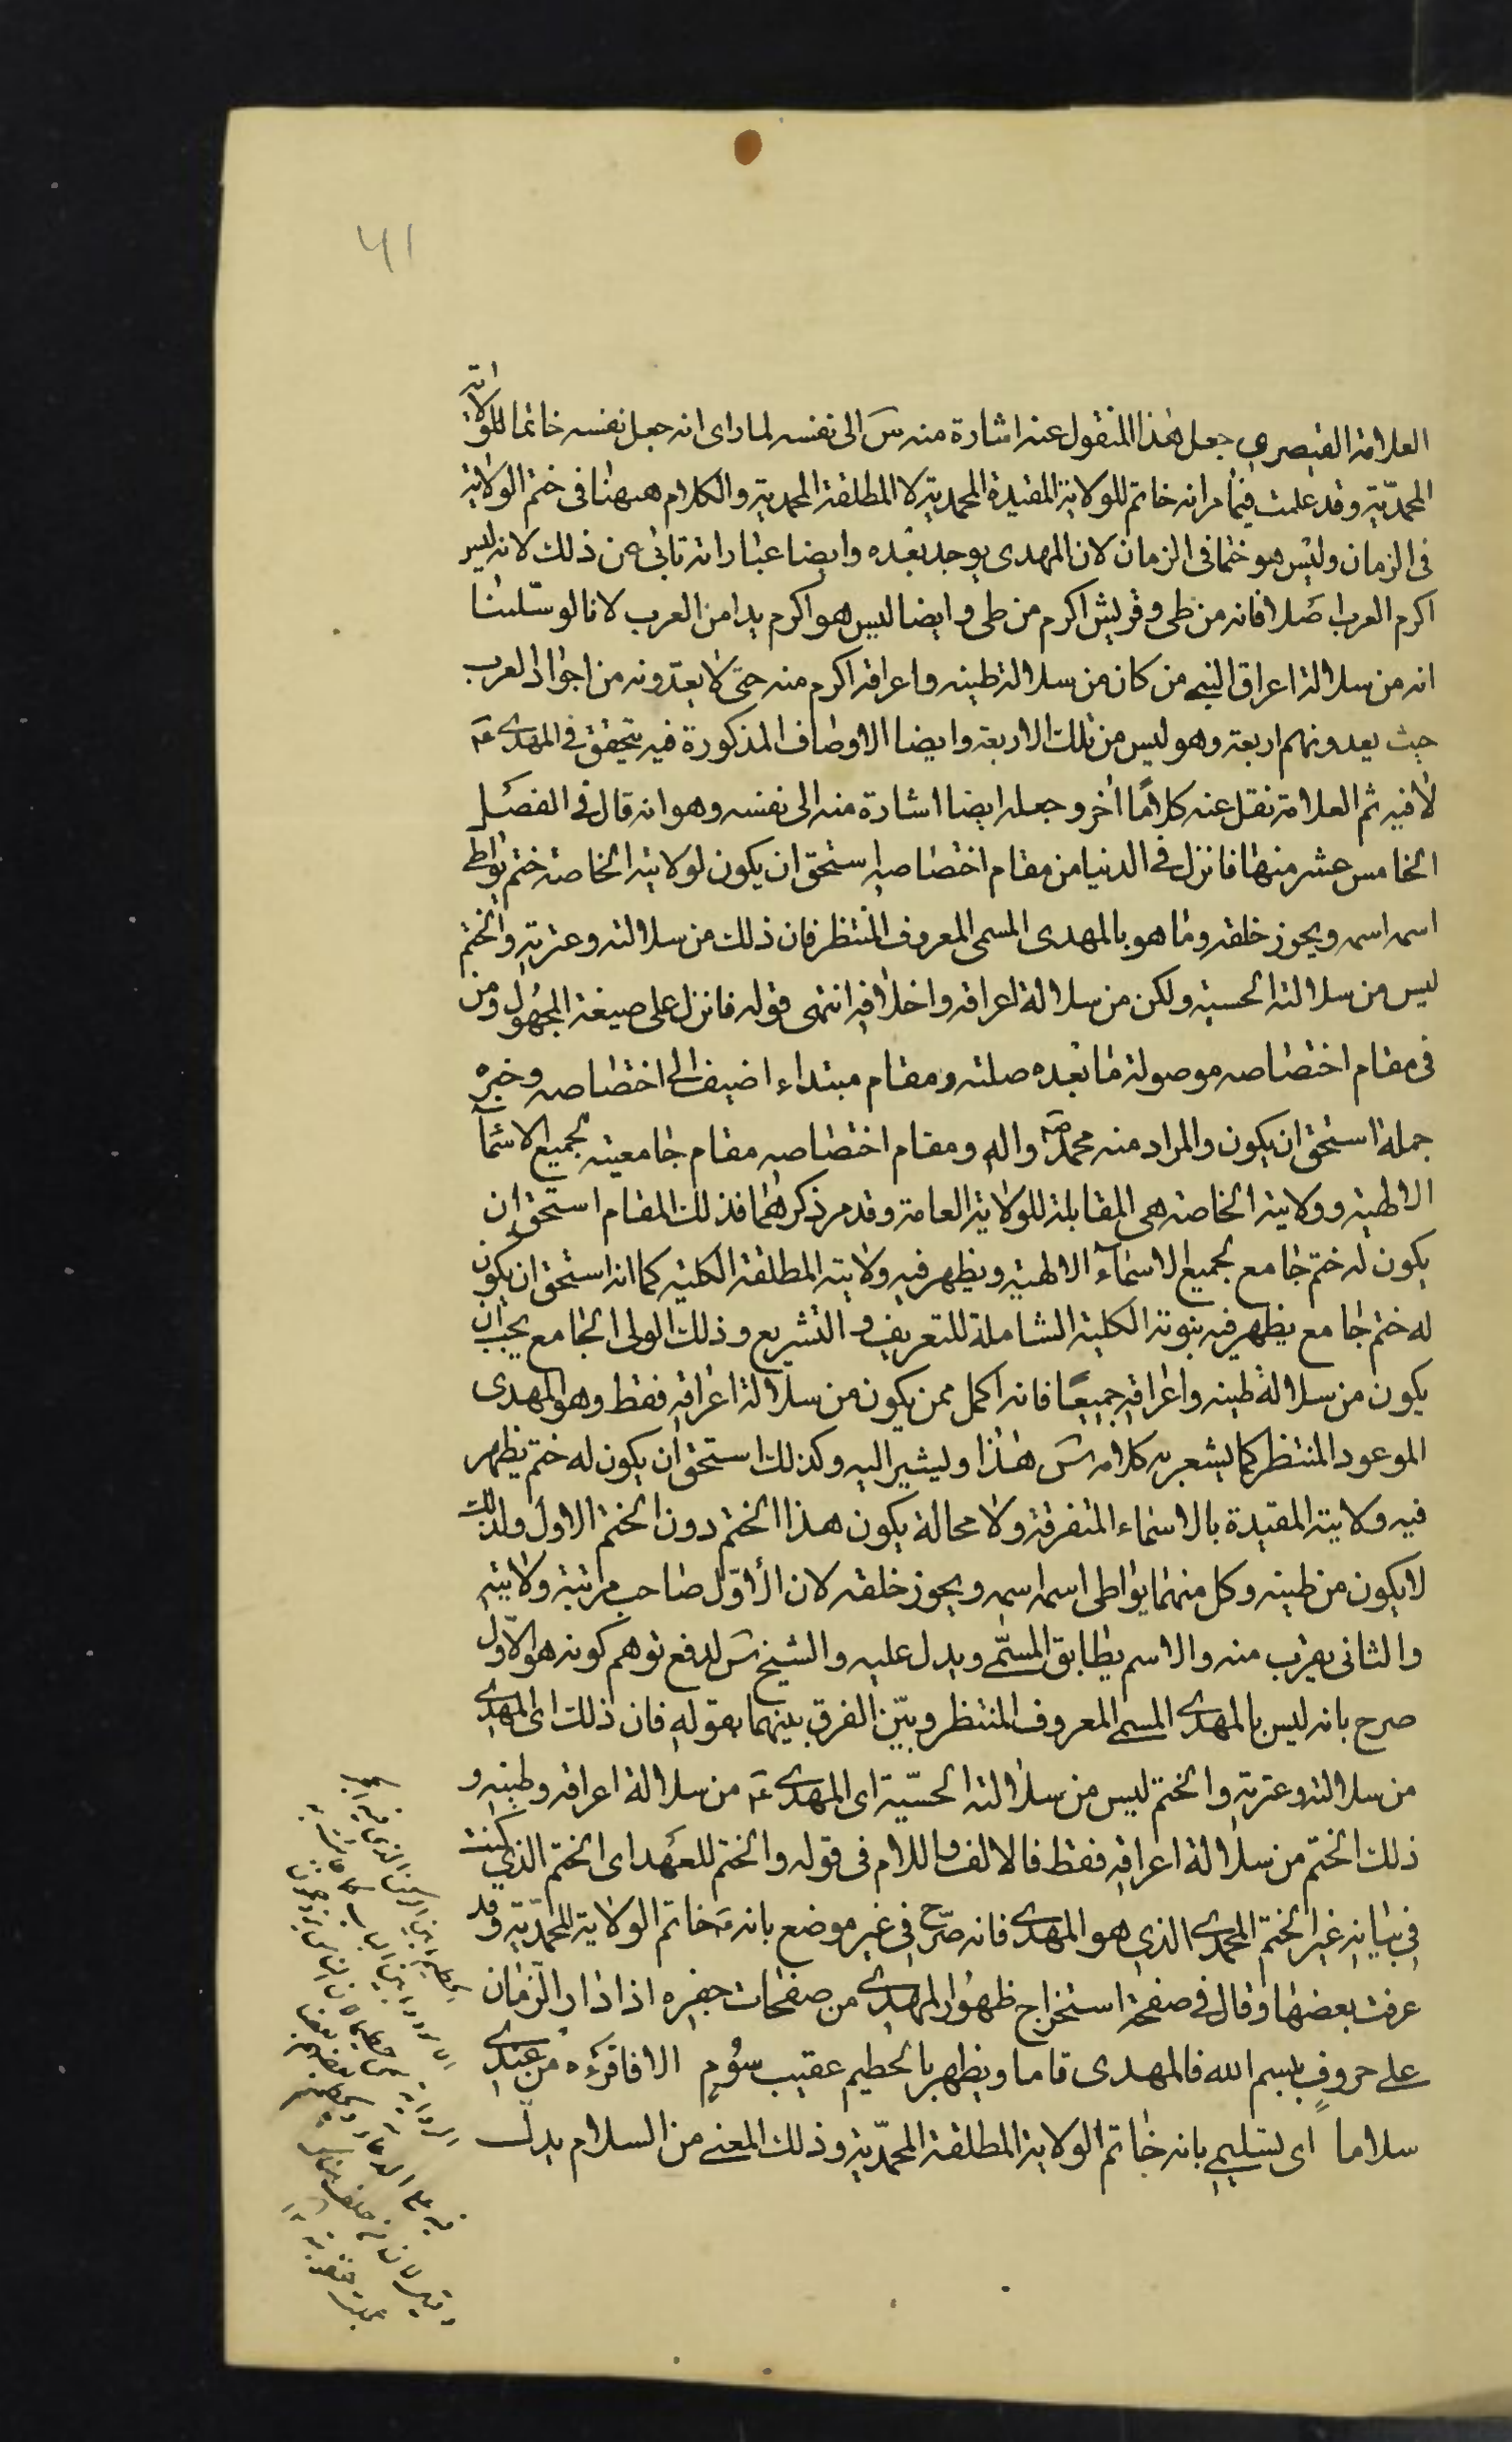 ٤١
العلامة القيصري جعل هذا المنقول عنه اشارة منه س الى نفسه لما راى انه جعل نفسه خاتما للولاية
المحمدّية وقد علمت فيما مر انه خاتم للولاية المقيدة المحمدية لا المطلقة المحمدية والكلام ههنا فى ختم الولاية
فى الزمان وليس هو ختما فى الزمان لان المهدى يوجد بعده وايضا عباراته تابى عن ذلك لانه ليس
اكرم العرب اصلا فانه من طى وقريش اكرم من طى وايضا ليس هو اكرم يدا من العرب لانا لو سلّمنا
انه من سلالة اعراق النبى من كان من سلالة طينه واعراقه اكرم منه حتى لا يعدّونه من اجواد العرب
حيث يعدونهم اربعة وهو ليس من تلك الاربعة وايضا الاوصاف المذكورة فيه يتحقق فى المهدى ع
لا فيه ثم العلامة نقل عنه كلامًا اخر وجعله ايضا اشارة منه الى نفسه وهو انه قال فى الفصل
الخامس عشر منها فانزل فى الدنيا من مقام اختصاصه استحق ان يكون لولايته الخاصة ختم يواطى
اسمه اسمه ويحوز خلقه وما هو بالمهدى المسمى المعروف المنتظر فان ذلك من سلالته وعترته والختم
ليس من سلالته الحسية ولكن من سلالة اعراقه واخلاقه انتهى قوله فانزل على صيغة المجهول ومن
فى مقام اختصاصه موصولة ما بعده صلته ومقام مبتداء اضيف الى اختصاصه وخبره
جملة استحق ان يكون والمراد منه محمد ص واله ومقام اختصاصه مقام جامعيته لجميع الاسمآ
الالهية وولايته الخاصة هى المقابلة للولاية العامة وقد مر ذكرهما فذلك المقام استحق ان
يكون له ختم جامع لجميع الاسمآء الالهية ويظهر فيه ولايته المطلقة الكلية كما انه استحق ان يكون
له ختم جامع يظهر فيه نبوته الكلية الشاملة للتعريف والتشريع وذلك الولى الجامع يجب ان
يكون من سلالة طينه واعراقه جميعًا فانه اكمل ممن يكون من سلالة اعراقه فقط وهو المهدى
الموعود المنتظر كما يشعر به كلامه س هذا ويشير اليه وكذلك استحق ان يكون له ختم يظهر
فيه ولايته المقيدة بالاسماء المتفرقة ولا محالة يكون هذا الختم دون الختم الاول ولذلك
لا يكون من طينه وكل منهما يواطى اسمه اسمه ويحوز خلقه لان الأوّل صاحب مرتبة ولايته
والثانى يقرب منه والاسم يطابق المسمّى ويدل عليه والشيخ س لدفع توهم كونه هو الاوّل
صرح بانه ليس بالمهدى المسمى المعروف المنتظر وبيّن الفرق بينهما بقوله فان ذلك اى المهدى
من سلالته وعترته والختم ليس من سلالته الحسّية اى المهدى ع من سلالة اعراقه وطينه و
ذلك الختم من سلالة اعراقه فقط فالالف واللام فى قوله والختم للعهد اى الختم الذي كنت
فى بيانه غير الختم المحمدى الذى هو المهدى فانه صرّح فى غير موضع بانه ع خاتم الولاية المحمّدية وقد
عرفت بعضها وقال فى صفحة استخراج ظهور المهدى من صفحات جفره اذا دار الزمان
على حروفٍ ببسم الله فالمهدى قاما ويظهر بالحطيم عقيب صومٍ الا فاقرؤه من عندى
سلاما اى تسليمى بانه خاتم الولاية المطلقة المحمّدية وذلك المعنى من السلام يدلّ